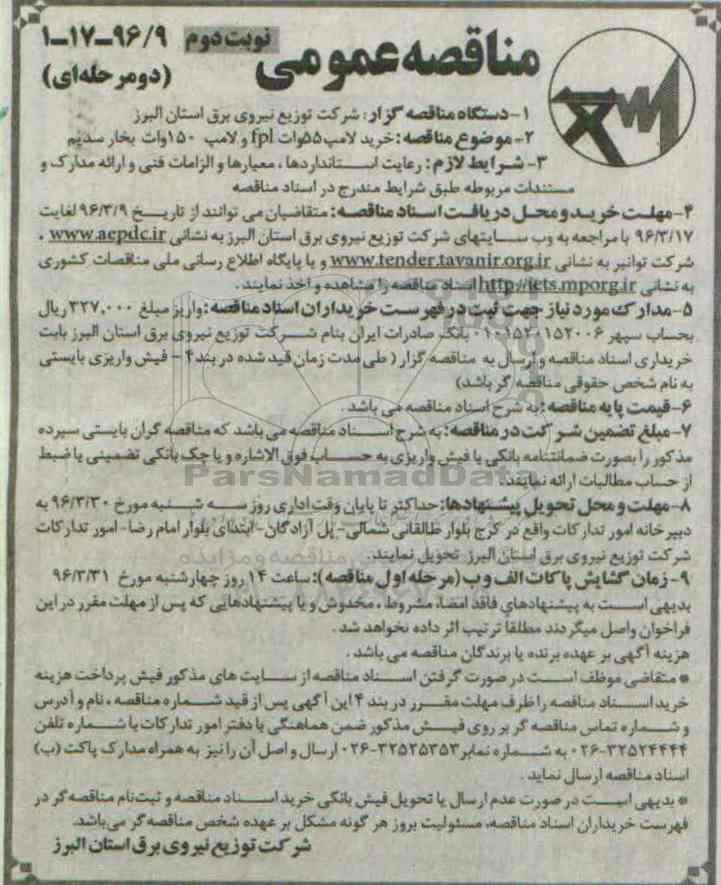 مناقصه عمومی نوبت دوم ۹۶/۹-۱۷-۱
(دو مرحله‌ای)
۱- دستگاه مناقصه گزار: شرکت توزیع نیروی برق استان البرز
۲- موضوع مناقصه: خرید لامپ ۵۵وات fpl و لامپ ۱۵۰وات بخار سدیم
۳- شرایط لازم: رعایت استانداردها، معیارها و الزامات فنی و ارائه مدارک و
مستندات مربوطه طبق شرایط مندرج در اسناد مناقصه
۴- مهلت خرید و محل دریافت اسناد مناقصه: متقاضیان می توانند از تاریخ ۹۶/۳/۹ لغایت
۹۶/۳/۱۷ با مراجعه به وب سایتهای شرکت توزیع نیروی برق استان البرز به نشانی www.aepdc.ir ،
شرکت توانیر به نشانی www.tender.tavanir.org.ir و یا پایگاه اطلاع رسانی ملی مناقصات کشوری
به نشانی http://iets.mporg.ir اسناد مناقصه را مشاهده و اخذ نمایند.
۵- مدارک مورد نیاز جهت ثبت در فهرست خریداران اسناد مناقصه: واریز مبلغ ۳۲۷,۰۰۰ ریال
بحساب سپهر ۰۱۰۱۵۲۰۱۵۲۰۰۶ بانک صادرات ایران بنام شرکت توزیع نیروی برق استان البرز بابت
خریداری اسناد مناقصه و ارسال به مناقصه گزار (طی مدت زمان قید شده در بند ۴ - فیش واریزی بایستی
به نام شخص حقوقی مناقصه گر باشد)
۶- قیمت پایه مناقصه: به شرح اسناد مناقصه می باشد.
۷- مبلغ تضمین شرکت در مناقصه: به شرح اسناد مناقصه می باشد که مناقصه گران بایستی سپرده
مذکور را بصورت ضمانتنامه بانکی یا فیش واریزی به حساب فوق الاشاره و یا چک بانکی تضمینی یا ضبط
از حساب مطالبات ارائه نمایند.
ParsNamadData
۸- مهلت و محل تحویل پیشنهادها: حداکثر تا پایان وقت اداری روز سه شنبه مورخ ۹۶/۳/۳۰ به
دبیرخانه امور تدارکات واقع در کرج بلوار طالقانی شمالی- پل آزادگان- ابتدای بلوار امام رضا- امور تدارکات
شرکت توزیع نیروی برق استان البرز تحویل نمایند.
۹- زمان گشایش پاکات الف و ب (مرحله اول مناقصه): ساعت ۱۴ روز چهارشنبه مورخ ۹۶/۳/۳۱
بدیهی است به پیشنهادهای فاقد امضا، مشروط، مخدوش و یا پیشنهادهایی که پس از مهلت مقرر در این
فراخوان واصل میگردند مطلقا ترتیب اثر داده نخواهد شد.
هزینه آگهی بر عهده برنده یا برندگان مناقصه می باشد.
* متقاضی موظف است در صورت گرفتن اسناد مناقصه از سایت های مذکور فیش پرداخت هزینه
خرید اسناد مناقصه را ظرف مهلت مقرر در بند ۴ این آگهی پس از قید شماره مناقصه، نام و آدرس
و شماره تماس مناقصه گر بر روی فیش مذکور ضمن هماهنگی با دفتر امور تدارکات با شماره تلفن
۰۲۶-۳۲۵۲۴۴۴۴ به شماره نمابر ۰۲۶-۳۲۵۲۵۳۵۳ ارسال و اصل آن را نیز به همراه مدارک پاکت (ب)
اسناد مناقصه ارسال نماید.
* بدیهی است در صورت عدم ارسال یا تحویل فیش بانکی خرید اسناد مناقصه و ثبت‌نام مناقصه‌گر در
فهرست خریداران اسناد مناقصه، مسئولیت بروز هر گونه مشکل بر عهده شخص مناقصه‌گر می‌باشد.
شرکت توزیع نیروی برق استان البرز